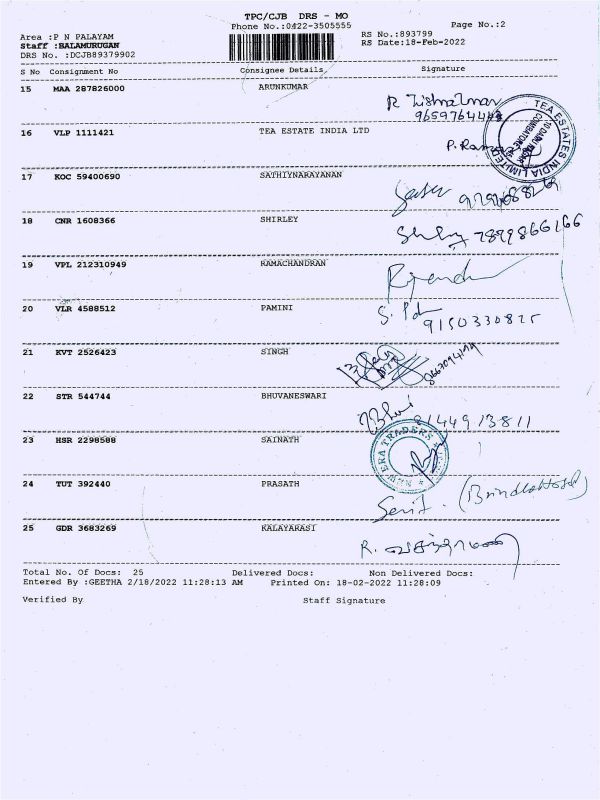 TPC/CJB DRS - MO
Phone No.:0422-3505555
Page No.:2
Area :P N PALAYAM
RS No.:893799
Staff :BALAMURUGAN
RS Date:18-Feb-2022
DRS No. :DCJB89379902
S No Consignment No Consignee Details Signature
15 MAA 287826000 ARUNKUMAR
16 VLP 1111421 TEA ESTATE INDIA LTD
TEA ESTATES INDIA LIMITED
COIMBATORE
17 KOC 59400690 SATHIYNARAYANAN
18 CNR 1608366 SHIRLEY
7899866166
19 VPL 212310949 RAMACHANDRAN
20 VLR 4588512 PAMINI
9150330825
21 KVT 2526423 SINGH
22 STR 544744 BHUVANESWARI
8144913811
23 HSR 2298588 SAINATH
NEW ERA TRADERS
24 TUT 392440 PRASATH
25 GDR 3683269 KALAYARASI
Total No. Of Docs: 25 Delivered Docs: Non Delivered Docs:
Entered By :GEETHA 2/18/2022 11:28:13 AM Printed On: 18-02-2022 11:28:09
Verified By Staff Signature